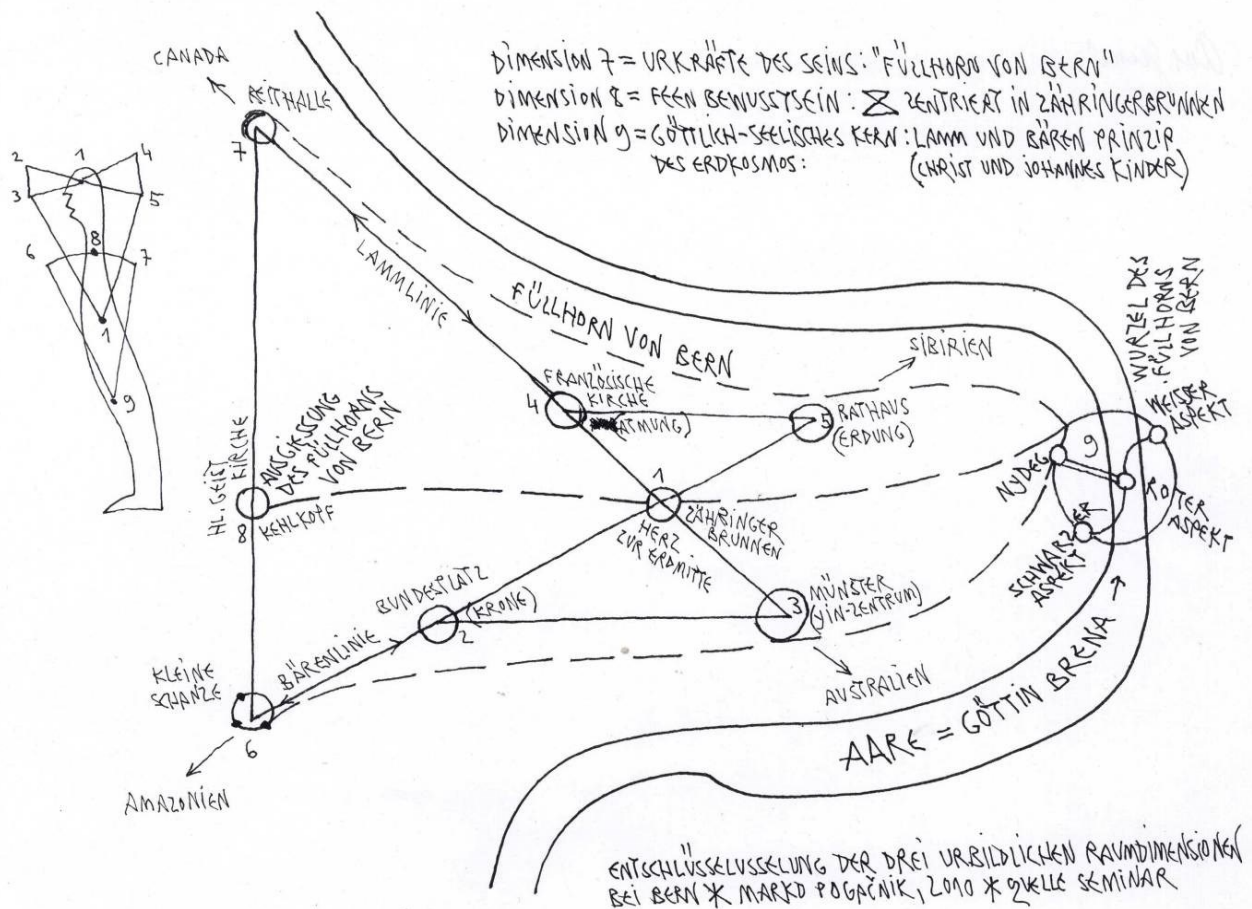 DIMENSION 7 = URKRÄFTE DES SEINS: "FÜLLHORN VON BERN"
DIMENSION 8 = FEEN BEWUSSTSEIN: ZENTRIERT IN ZÄHRINGERBRUNNEN
DIMENSION 9 = GÖTTLICH-SEELISCHES KERN: LAMM UND BÄREN PRINZIP
DES ERDKOSMOS: (CHRIST UND JOHANNES KINDER)
CANADA
REITHALLE
7
2
1
4
3
5
8
6
7
1
9
LAMMLINIE
FÜLLHORN VON BERN
SIBIRIEN
WURZEL DES
FÜLLHORNS
VON BERN
WEISSER
ASPEKT
FRANZÖSISCHE
KIRCHE
4
(ATMUNG)
5
RATHAUS
(ERDUNG)
9
NYDEG
ROTER
ASPEKT
SCHWARZER
ASPEKT
HL. GEIST
KIRCHE
AUSGIESSUNG
DES FÜLLHORNS
VON BERN
8
KEHLKOPF
1
ZÄHRINGER
BRUNNEN
HERZ
ZUR ERDMITTE
BUNDESPLATZ
(KRONE)
2
3
MÜNSTER
(YIN-ZENTRUM)
BÄRENLINIE
KLEINE
SCHANZE
6
AUSTRALIEN
AMAZONIEN
AARE = GÖTTIN BRENA
ENTSCHLÜSSELUSSELUNG DER DREI URBILDLICHEN RAUMDIMENSIONEN
BEI BERN * MARKO POGAČNIK, 2010 * QUELLE SEMINAR